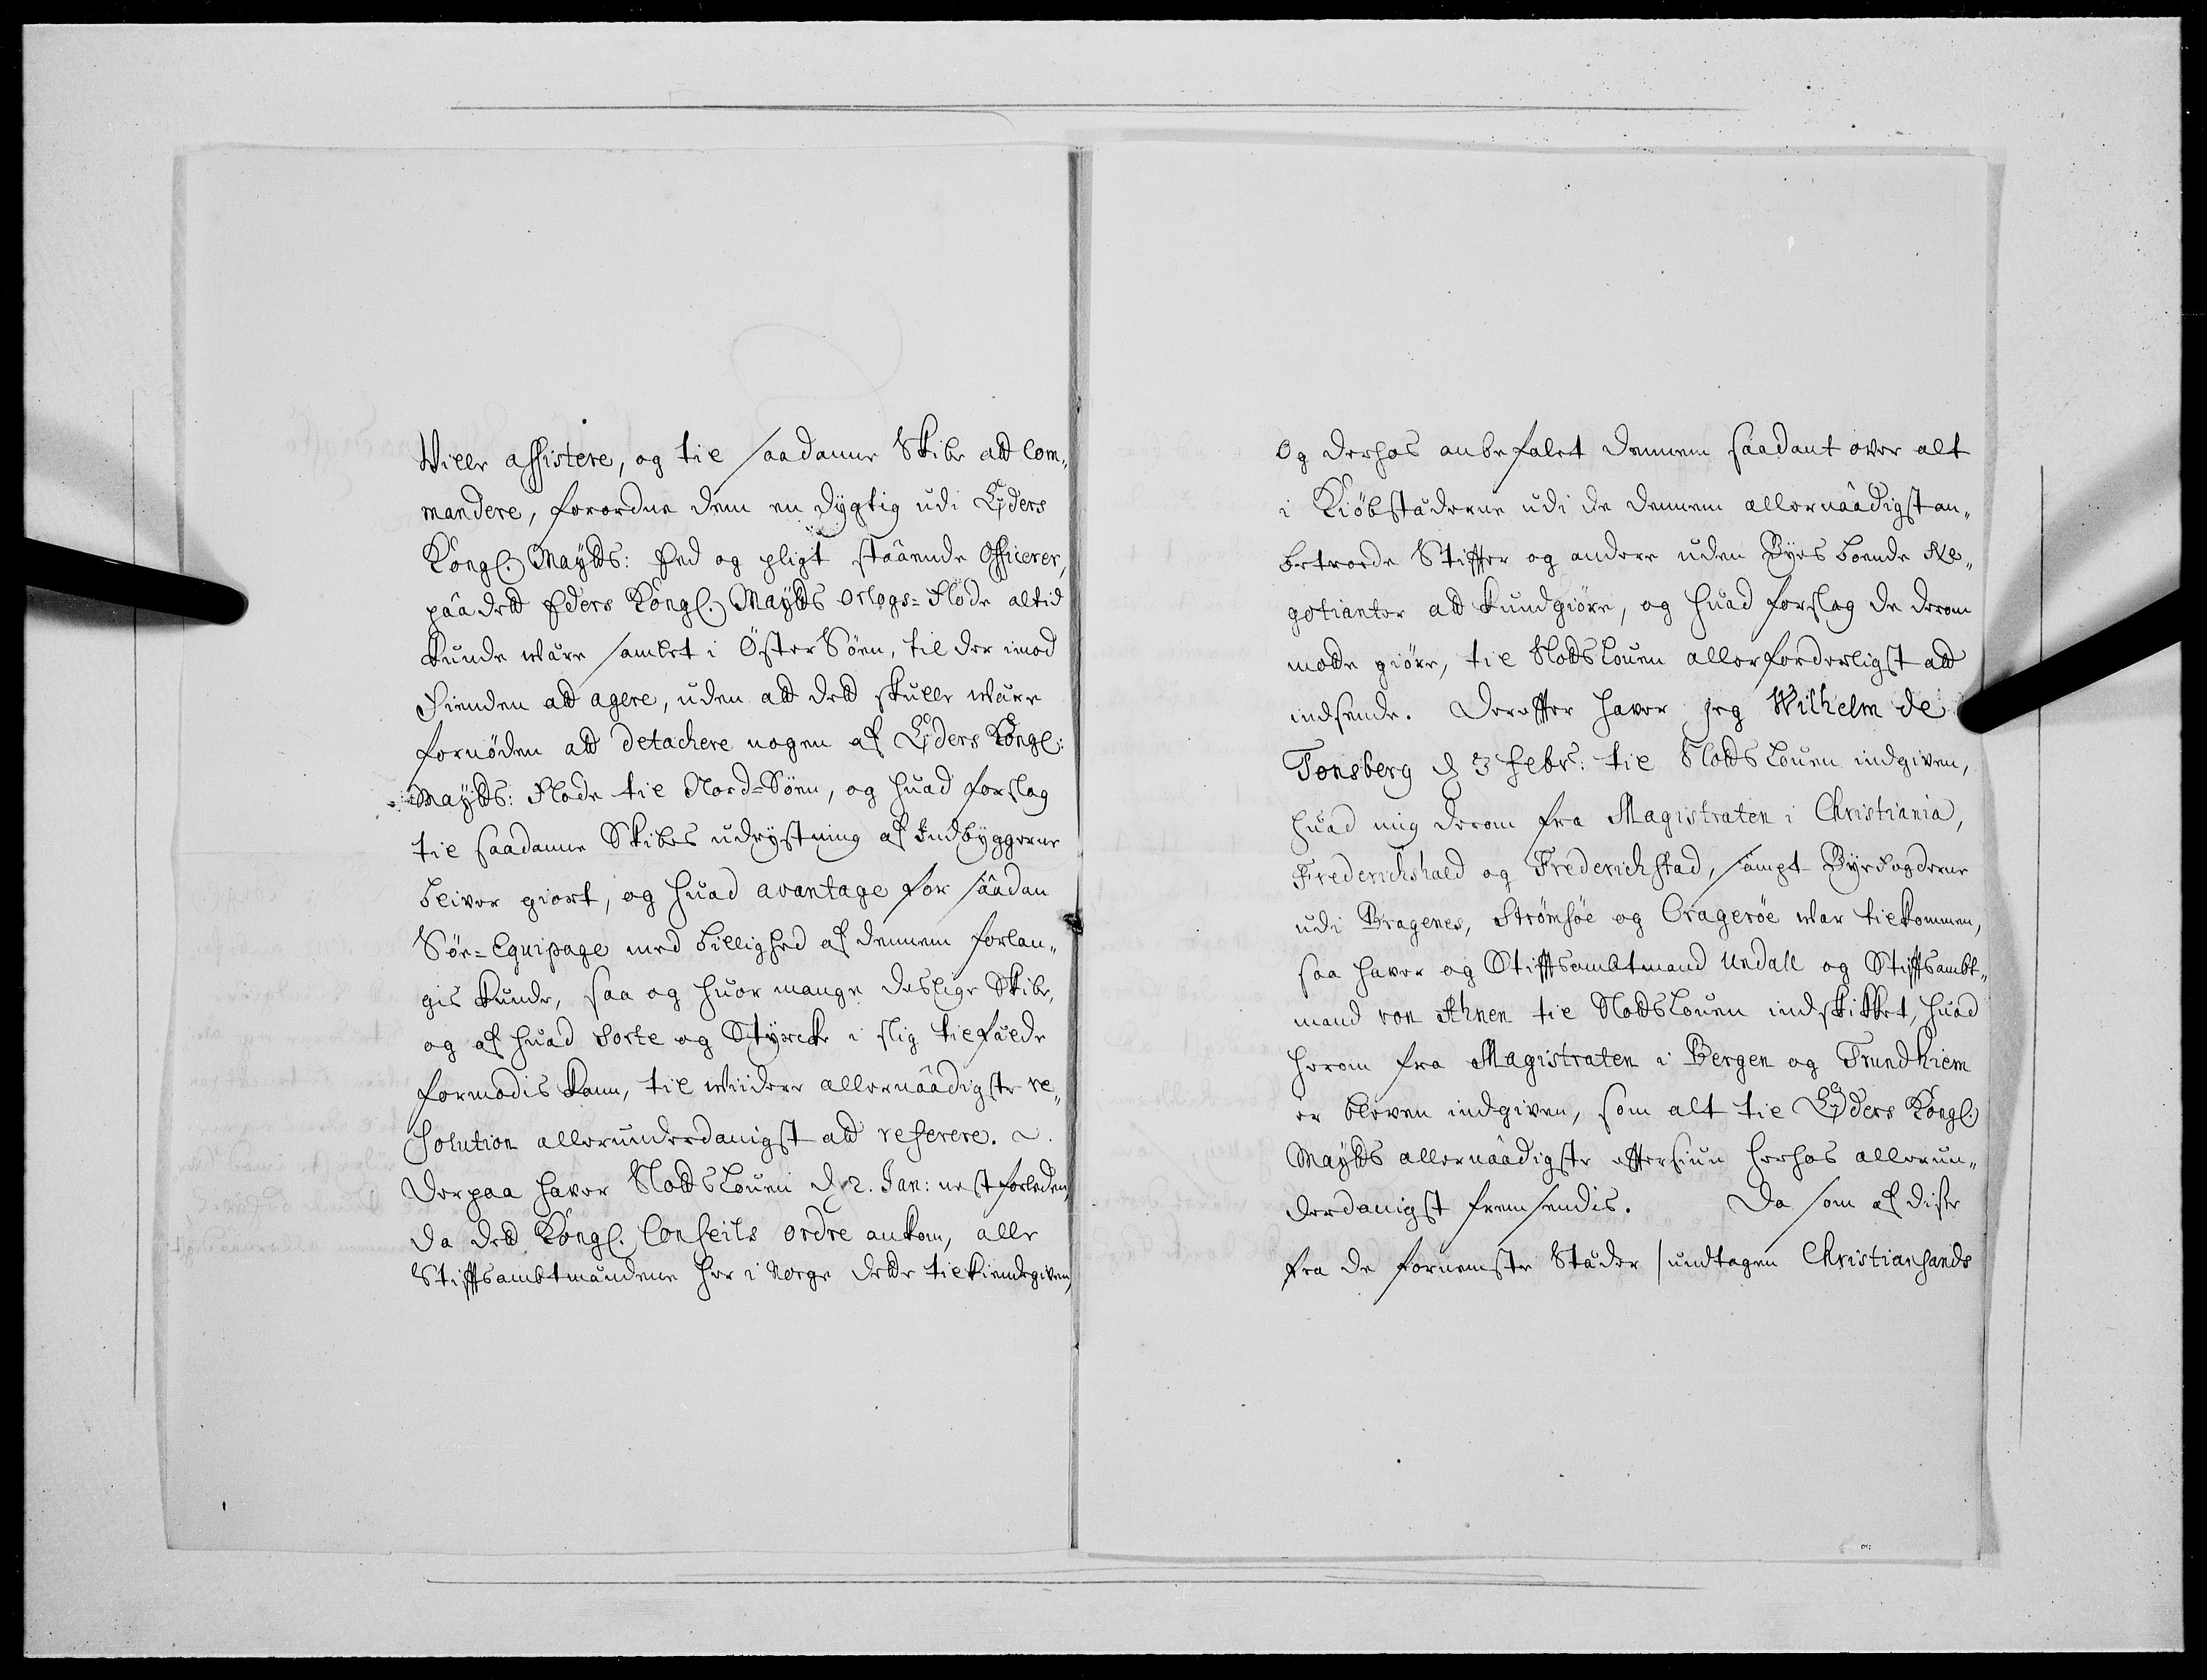 Wille assistere, og til saadanne Skibe att com„
mandere, forordne dem en dygtig udi Eÿders
Kongl. Maÿtts: Eed og pligt stâaende Officerer,
pâa dett Eders Kongl. Maÿtts Orlogs-Flode altid
kunde være samlet i Øster Søen, til der imod
Fienden att agere, uden att dett skulle være
fornøden att detachere nogen af Eÿders Kongl:
Maÿtts: Flode til Nord-Søen, og huad forslag
til saadanne Skibes udrystning af Indbyggerne
bliver giort, og huad avantage for sâadan
Søe-Equipage med billighed af dennem forlan„
gis kunde, saa og huor mange deslige Skibe,
og af huad Sorte og Styrcke i slig tilfælde
formodis kann, til wiidere allernâadigste re„
solution allerunderdanigst att referere.
Derpaa haver Slotts Louen d 2. Jan: nest forleden,
da dett Kongl. Conseils ordre ankom, alle
Stifftsambtmændene her i Norge dette tilkiendegiven,
Og derhos anbefalet dennem saadant over alt
i Kiøbstæderne udi de dennem allernâadigst an„
betroede Stiffter og andere uden Byes boende Ne„
gotianter att kundgiøre, og huad forslag de derom
motte giøre, til Slotts Louen allerforderligst att
indsende. Dereffter haver jeg Wilhelm de
Tonsberg d 3 Febr: til Slotts Louen indgiven,
huad mig derom fra Magistraten i Christiania,
Frederichshald og Frederichstad, sampt Byefogderne
udi Bragenes, Strømsøe og Cragerøe war tilkommen,
saa haver og Stifftsambtmand Undall og Stifftsambt„
mand von Ahnen til Slotts Louen indskikket, huad
herom fra Magistraten i Bergen og Trundhiem
er bleven indgiven, som alt til Eÿders Kongl.
Maÿtts allernâadigste effterseun herhos allerun„
derdanigst fremsendis. Da som af disse
fra de fornemste Stæder /undtagen Christiansands